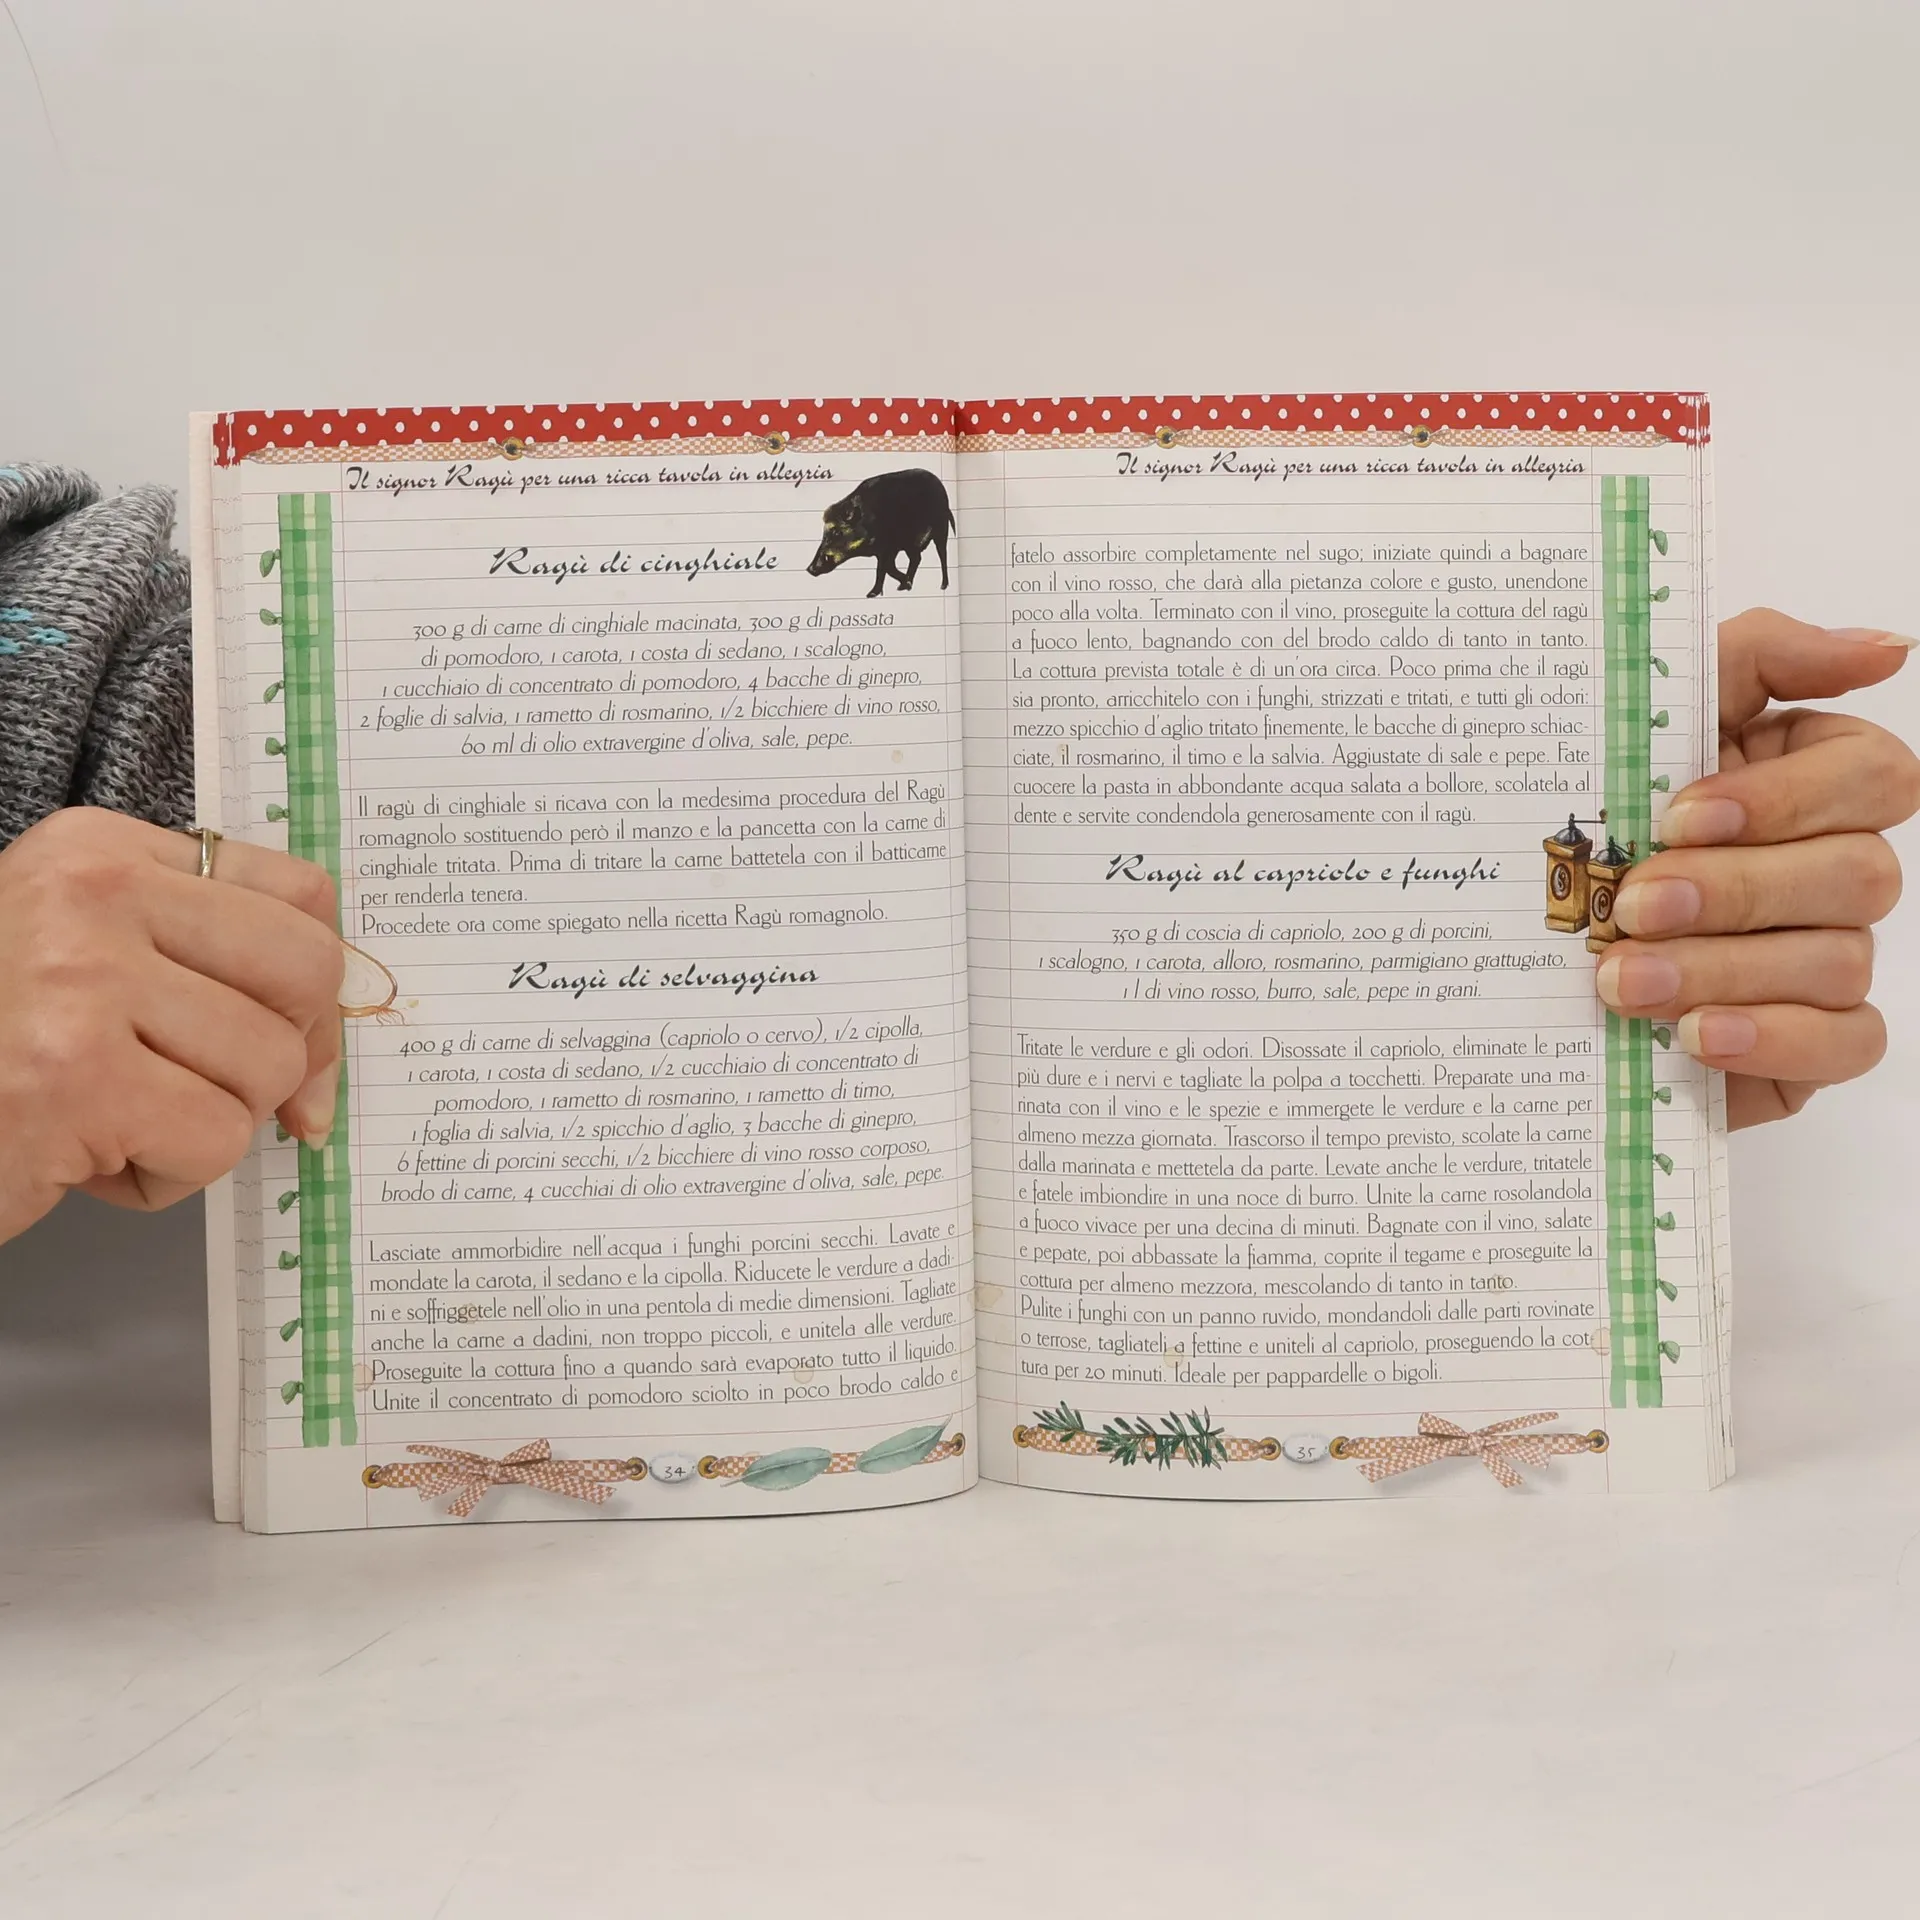 Il signor Ragù per una ricca tavola in allegria
Ragù di cinghiale
300 g di carne di cinghiale macinata, 300 g di passata
di pomodoro, 1 carota, 1 costa di sedano, 1 scalogno,
1 cucchiaio di concentrato di pomodoro, 4 bacche di ginepro,
2 foglie di salvia, 1 rametto di rosmarino, 1/2 bicchiere di vino rosso,
60 ml di olio extravergine d'oliva, sale, pepe.
Il ragù di cinghiale si ricava con la medesima procedura del Ragù
romagnolo sostituendo però il manzo e la pancetta con la carne di
cinghiale tritata. Prima di tritare la carne battetela con il batticarne
per renderla tenera.
Procedete ora come spiegato nella ricetta Ragù romagnolo.
Ragù di selvaggina
400 g di carne di selvaggina (capriolo o cervo), 1/2 cipolla,
1 carota, 1 costa di sedano, 1/2 cucchiaio di concentrato di
pomodoro, 1 rametto di rosmarino, 1 rametto di timo,
1 foglia di salvia, 1/2 spicchio d'aglio, 3 bacche di ginepro,
6 fettine di porcini secchi, 1/2 bicchiere di vino rosso corposo,
brodo di carne, 4 cucchiai di olio extravergine d'oliva, sale, pepe.
Lasciate ammorbidire nell'acqua i funghi porcini secchi. Lavate e
mondate la carota, il sedano e la cipolla. Riducete le verdure a dadi-
ni e soffriggetele nell'olio in una pentola di medie dimensioni. Tagliate
anche la carne a dadini, non troppo piccoli, e unitela alle verdure.
Proseguite la cottura fino a quando sarà evaporato tutto il liquido.
Unite il concentrato di pomodoro sciolto in poco brodo caldo e
34
Il signor Ragù per una ricca tavola in allegria
fatelo assorbire completamente nel sugo; iniziate quindi a bagnare
con il vino rosso, che darà alla pietanza colore e gusto, unendone
poco alla volta. Terminato con il vino, proseguite la cottura del ragù
a fuoco lento, bagnando con del brodo caldo di tanto in tanto.
La cottura prevista totale è di un'ora circa. Poco prima che il ragù
sia pronto, arricchitelo con i funghi, strizzati e tritati, e tutti gli odori:
mezzo spicchio d'aglio tritato finemente, le bacche di ginepro schiac-
ciate, il rosmarino, il timo e la salvia. Aggiustate di sale e pepe. Fate
cuocere la pasta in abbondante acqua salata a bollore, scolatela al
dente e servite condendola generosamente con il ragù.
Ragù al capriolo e funghi
350 g di coscia di capriolo, 200 g di porcini,
1 scalogno, 1 carota, alloro, rosmarino, parmigiano grattugiato,
1 l di vino rosso, burro, sale, pepe in grani.
Tritate le verdure e gli odori. Disossate il capriolo, eliminate le parti
più dure e i nervi e tagliate la polpa a tocchetti. Preparate una ma-
rinata con il vino e le spezie e immergete le verdure e la carne per
almeno mezza giornata. Trascorso il tempo previsto, scolate la carne
dalla marinata e mettetela da parte. Levate anche le verdure, tritatele
e fatele imbiondire in una noce di burro. Unite la carne rosolandola
a fuoco vivace per una decina di minuti. Bagnate con il vino, salate
e pepate, poi abbassate la fiamma, coprite il tegame e proseguite la
cottura per almeno mezzora, mescolando di tanto in tanto.
Pulite i funghi con un panno ruvido, mondandoli dalle parti rovinate
o terrose, tagliateli a fettine e uniteli al capriolo, proseguendo la cot
tura per 20 minuti. Ideale per pappardelle o bigoli.
35